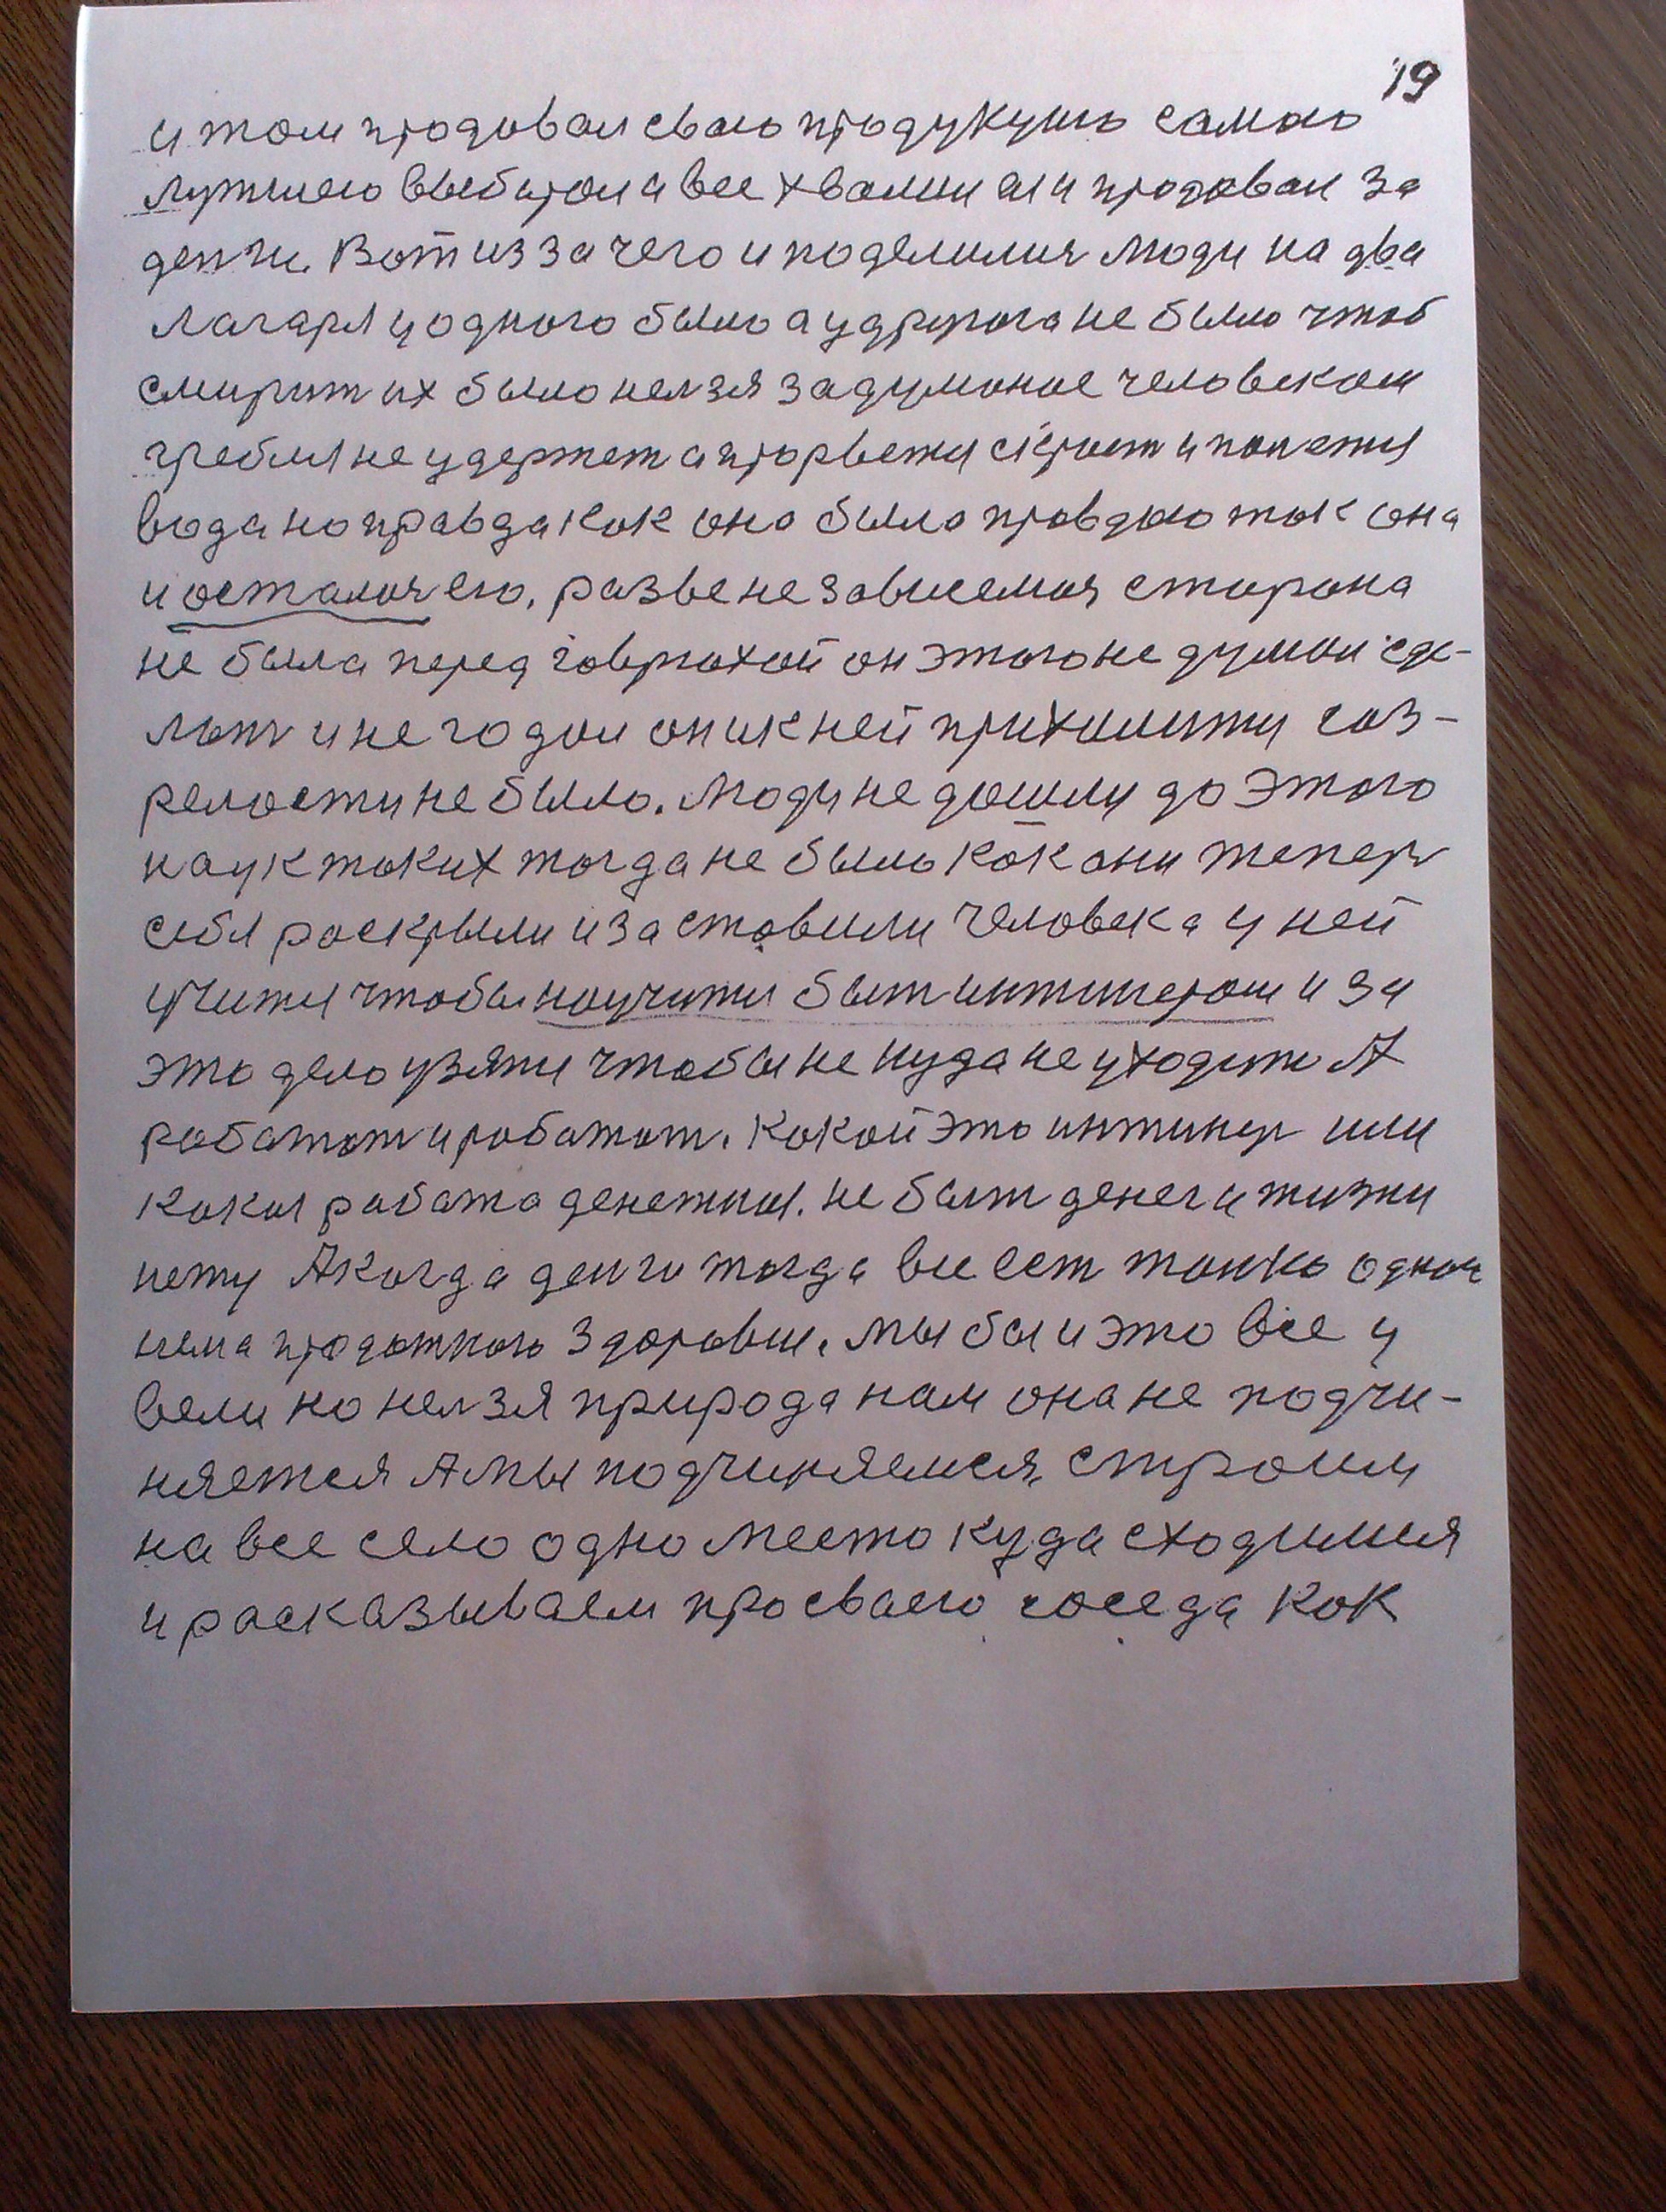 19
и там продовал сваю продукцию самаю
лутшею выбирал и все хвалился и продовал за
денги. Вот из за чего и поделилися люди на два
лагаря у одного было а у другога не было чтоб
смирит их было нелзя задуманое человеком
гребля не удержет а прорветя
вода но правда как она была правдаю так она
и осталася ею, разве не зависемая старана
не была перед он этого не думал сде-
лат и не годал он к ней
релости не было. Люди не дошли до этого
наук таких тогда не было как они тепер
себя раскрыли и заставили человека у ней
учитя чтобы научитя быт интинером и за
это дело узятя чтобы не куда не уходит А
работат и работат. Какой это интинер или
какая работа денежная. не быт денег и жизни
нету А когда денги тогда все ест толко одног
нема продажного здоровия. Мы бы и это все у
вели но нелзя природа нам она не подчи-
няется А мы подчиняемся, строим
на все село одно место куда сходимся
и расказываем про сваего соседа как